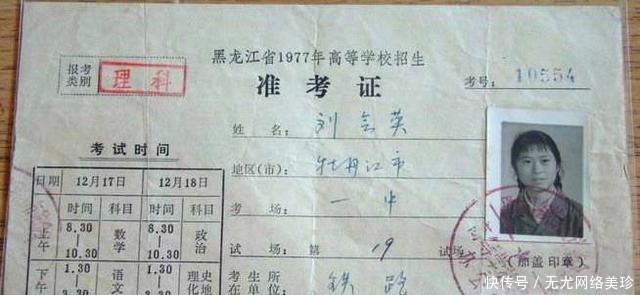 黑龙江省1977年高等学校招生
报考类别 理科
准考证
考号: 10554
姓名: 刘会英
地区(市): 牡丹江市
考场: 一中
试场: 第19试场
考生所在单位: 铁路
(加盖印章)
考试时间
日期 12月17日 12月18日
时间 科目 时间 科目
上午 8.30—10.30 数学 8.30—10.30 政治
下午 1.30 语文 1.30 理化 史地
快传号/无尤网络美珍